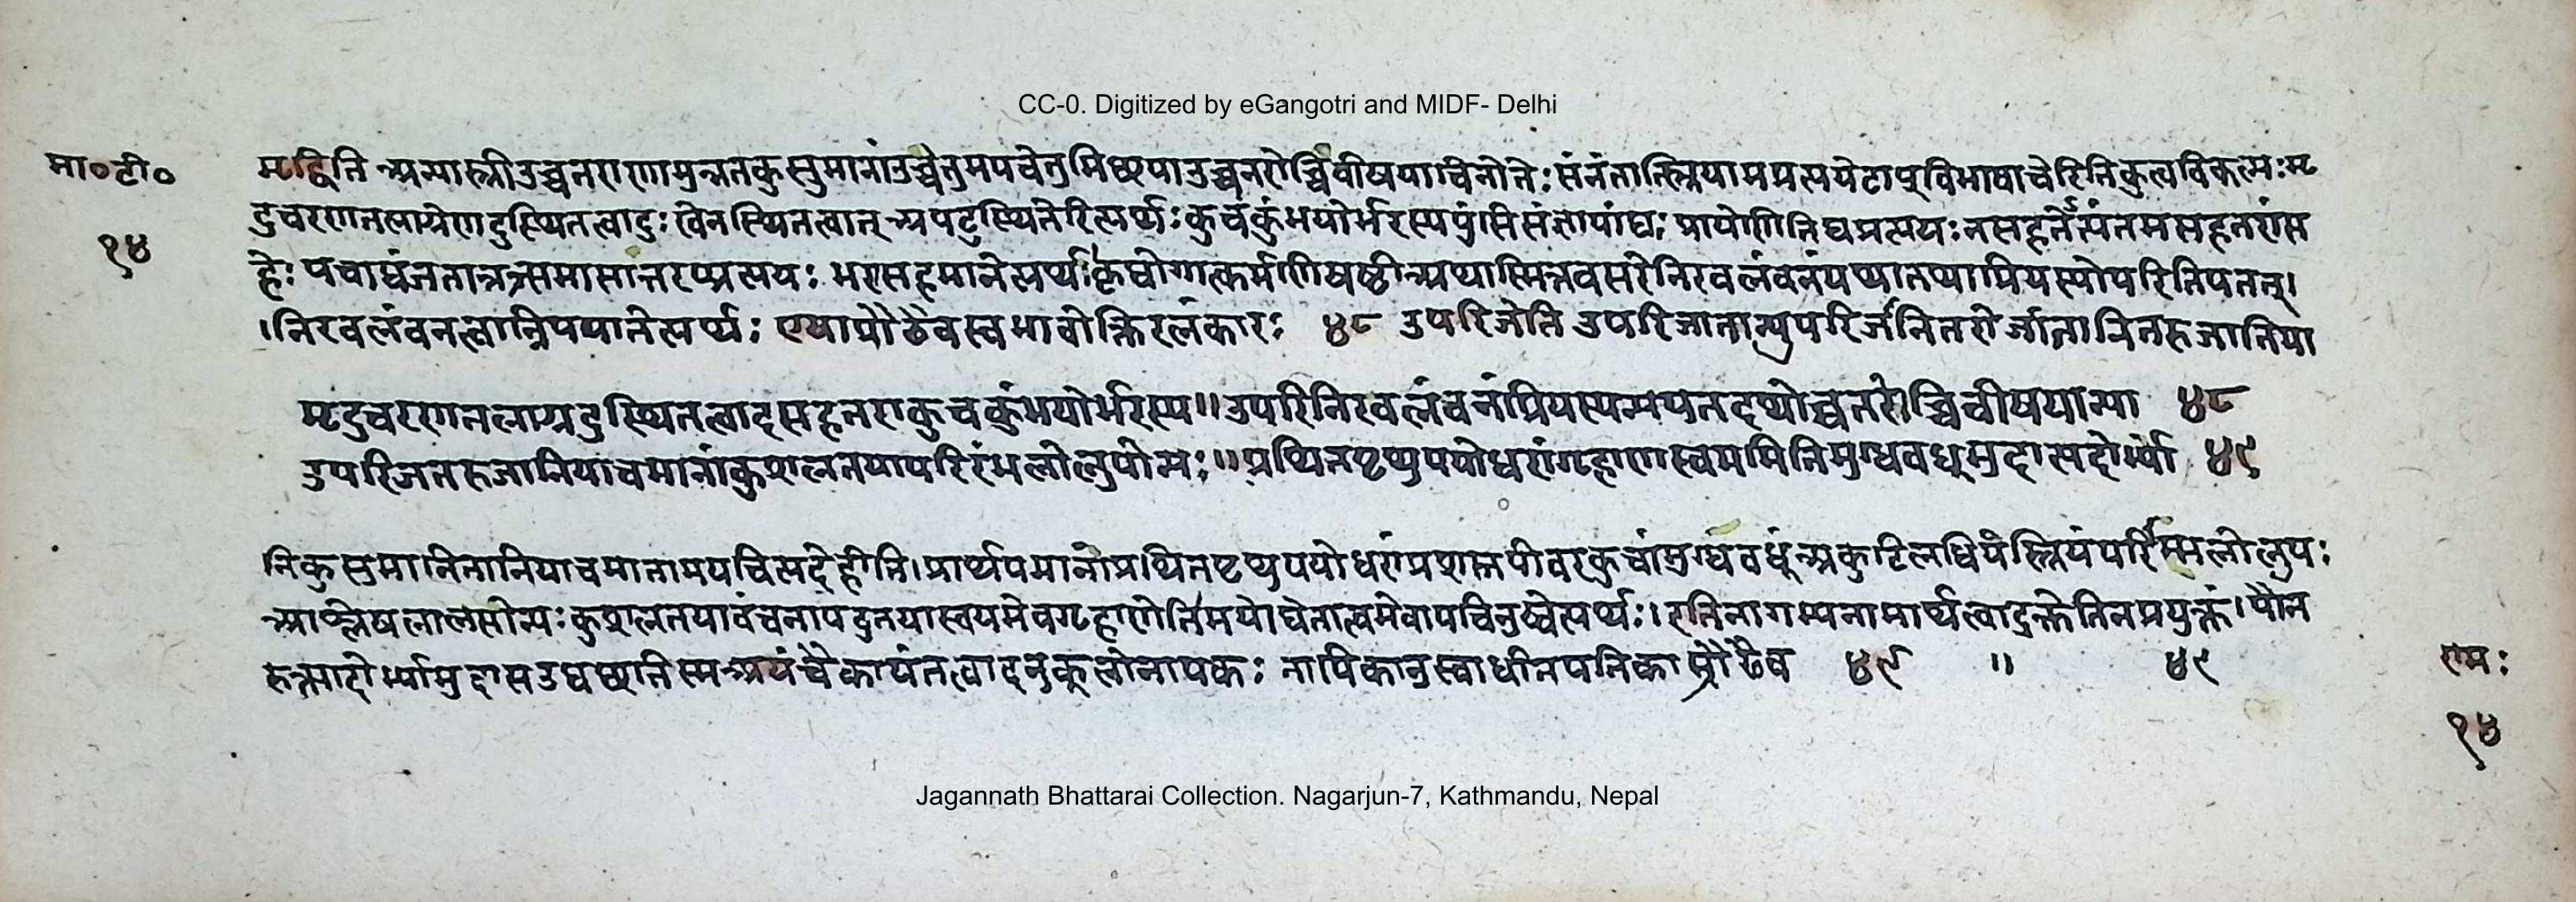 CC-0. Digitized by eGangotri and MIDF- Delhi
मा॰टी॰
१४
मृद्विति अन्यास्त्रीउच्चतराणामुन्नतकुसुमानांउच्चेतुमपचेतुमिछयाउच्चतरोच्चिचीषयाचिनोतेः संनंतात्स्त्रियामप्रत्ययेटाप् विभाषाचेरितिकुत्वविकल्पः मृ
दुचरणतलाग्रेणदुस्थितत्वादुःखेनस्थितत्वात् अपटुस्थितेरित्यर्थः कुचकुंभयोर्भरस्यपुंसिसंज्ञायांघः प्रायेणेतिघप्रत्ययः नसहतेत्यंतमसहतरांस
हेः पचाद्यंजतात्तत्रसमासांत्तरप्प्रत्ययः भरासहमानेत्यर्थः कृद्योगात्कर्मणिषष्ठीअथास्मिन्नवसरेनिरवलंवनंयथातथाप्रियस्योपरितिपतत्।
।निरवलंवनत्वान्निपपातेत्यर्थः एषाप्रौढैवस्वभावोक्तिरलंकारः ४८ उपरिजेति उपरिजातान्युपरिजनितरोर्जातानितरुजानिया
मृदुचरणतलाग्रदुस्थितत्वादसहतराकुचकुंभयोर्भरस्य॥उपरिनिरवलंवनंप्रियस्यन्यपतदथोच्चतरोच्चिचीषयान्या ४८
उपरिजतरुजानियाचमानांकुशलतयापरिरंभलोलुपोन्यः॥प्रथितपृथुपयोधरांगृहाणस्वयमितिमुग्धवधूमुदासदोर्भ्यां ४९
निकुसुमानितानियाचमानामपचित्यदेहीति।प्रार्थयमानांप्रथितपृथुपयोधरांप्रशस्तपीवरकुचांमुग्धवधूंअकुटिलधियंस्त्रियंपरिरंभलोलुपः
आश्लेषलालसोन्यःकुशलतयावंचनापटुतयास्वयमेवगृहाणेतिमयोद्येतात्वमेवापचिनुष्वेत्यर्थः।इतिनागम्यनामार्थत्वादुक्तेतिनप्रयुक्तं।पौन
रुक्त्यात्दोर्भ्यामुदासउद्यछतिस्मअयंचैकायंतत्वादनुकूलोनायकः नायिकातुस्वाधीनपतिकाप्रौढैव ४९ ॥ ४९
रामः
१४
Jagannath Bhattarai Collection. Nagarjun-7, Kathmandu, Nepal